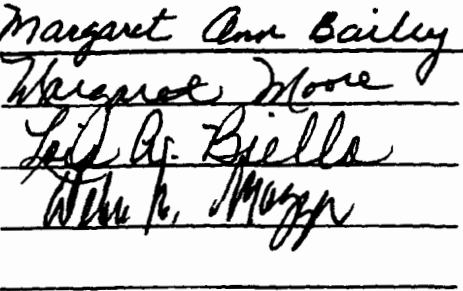 Margaret Ann Bailey
Margaret Moore
Lois A. Bjella